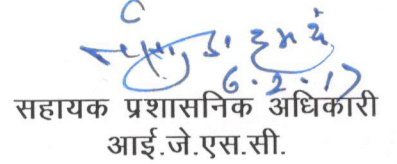 6.2.17
सहायक प्रशासनिक अधिकारी
आई.जे.एस.सी.